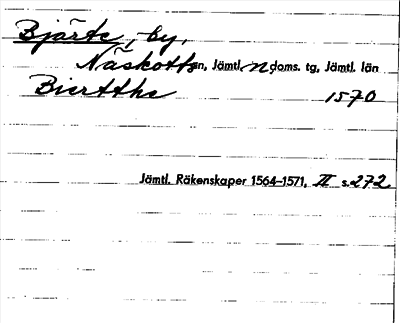 Bjärte, by,
Näskotts n, Jämtl. n doms. tg, Jämtl. län
Biertthe 1570
Jämtl. Räkenskaper 1564–1571, II s. 272